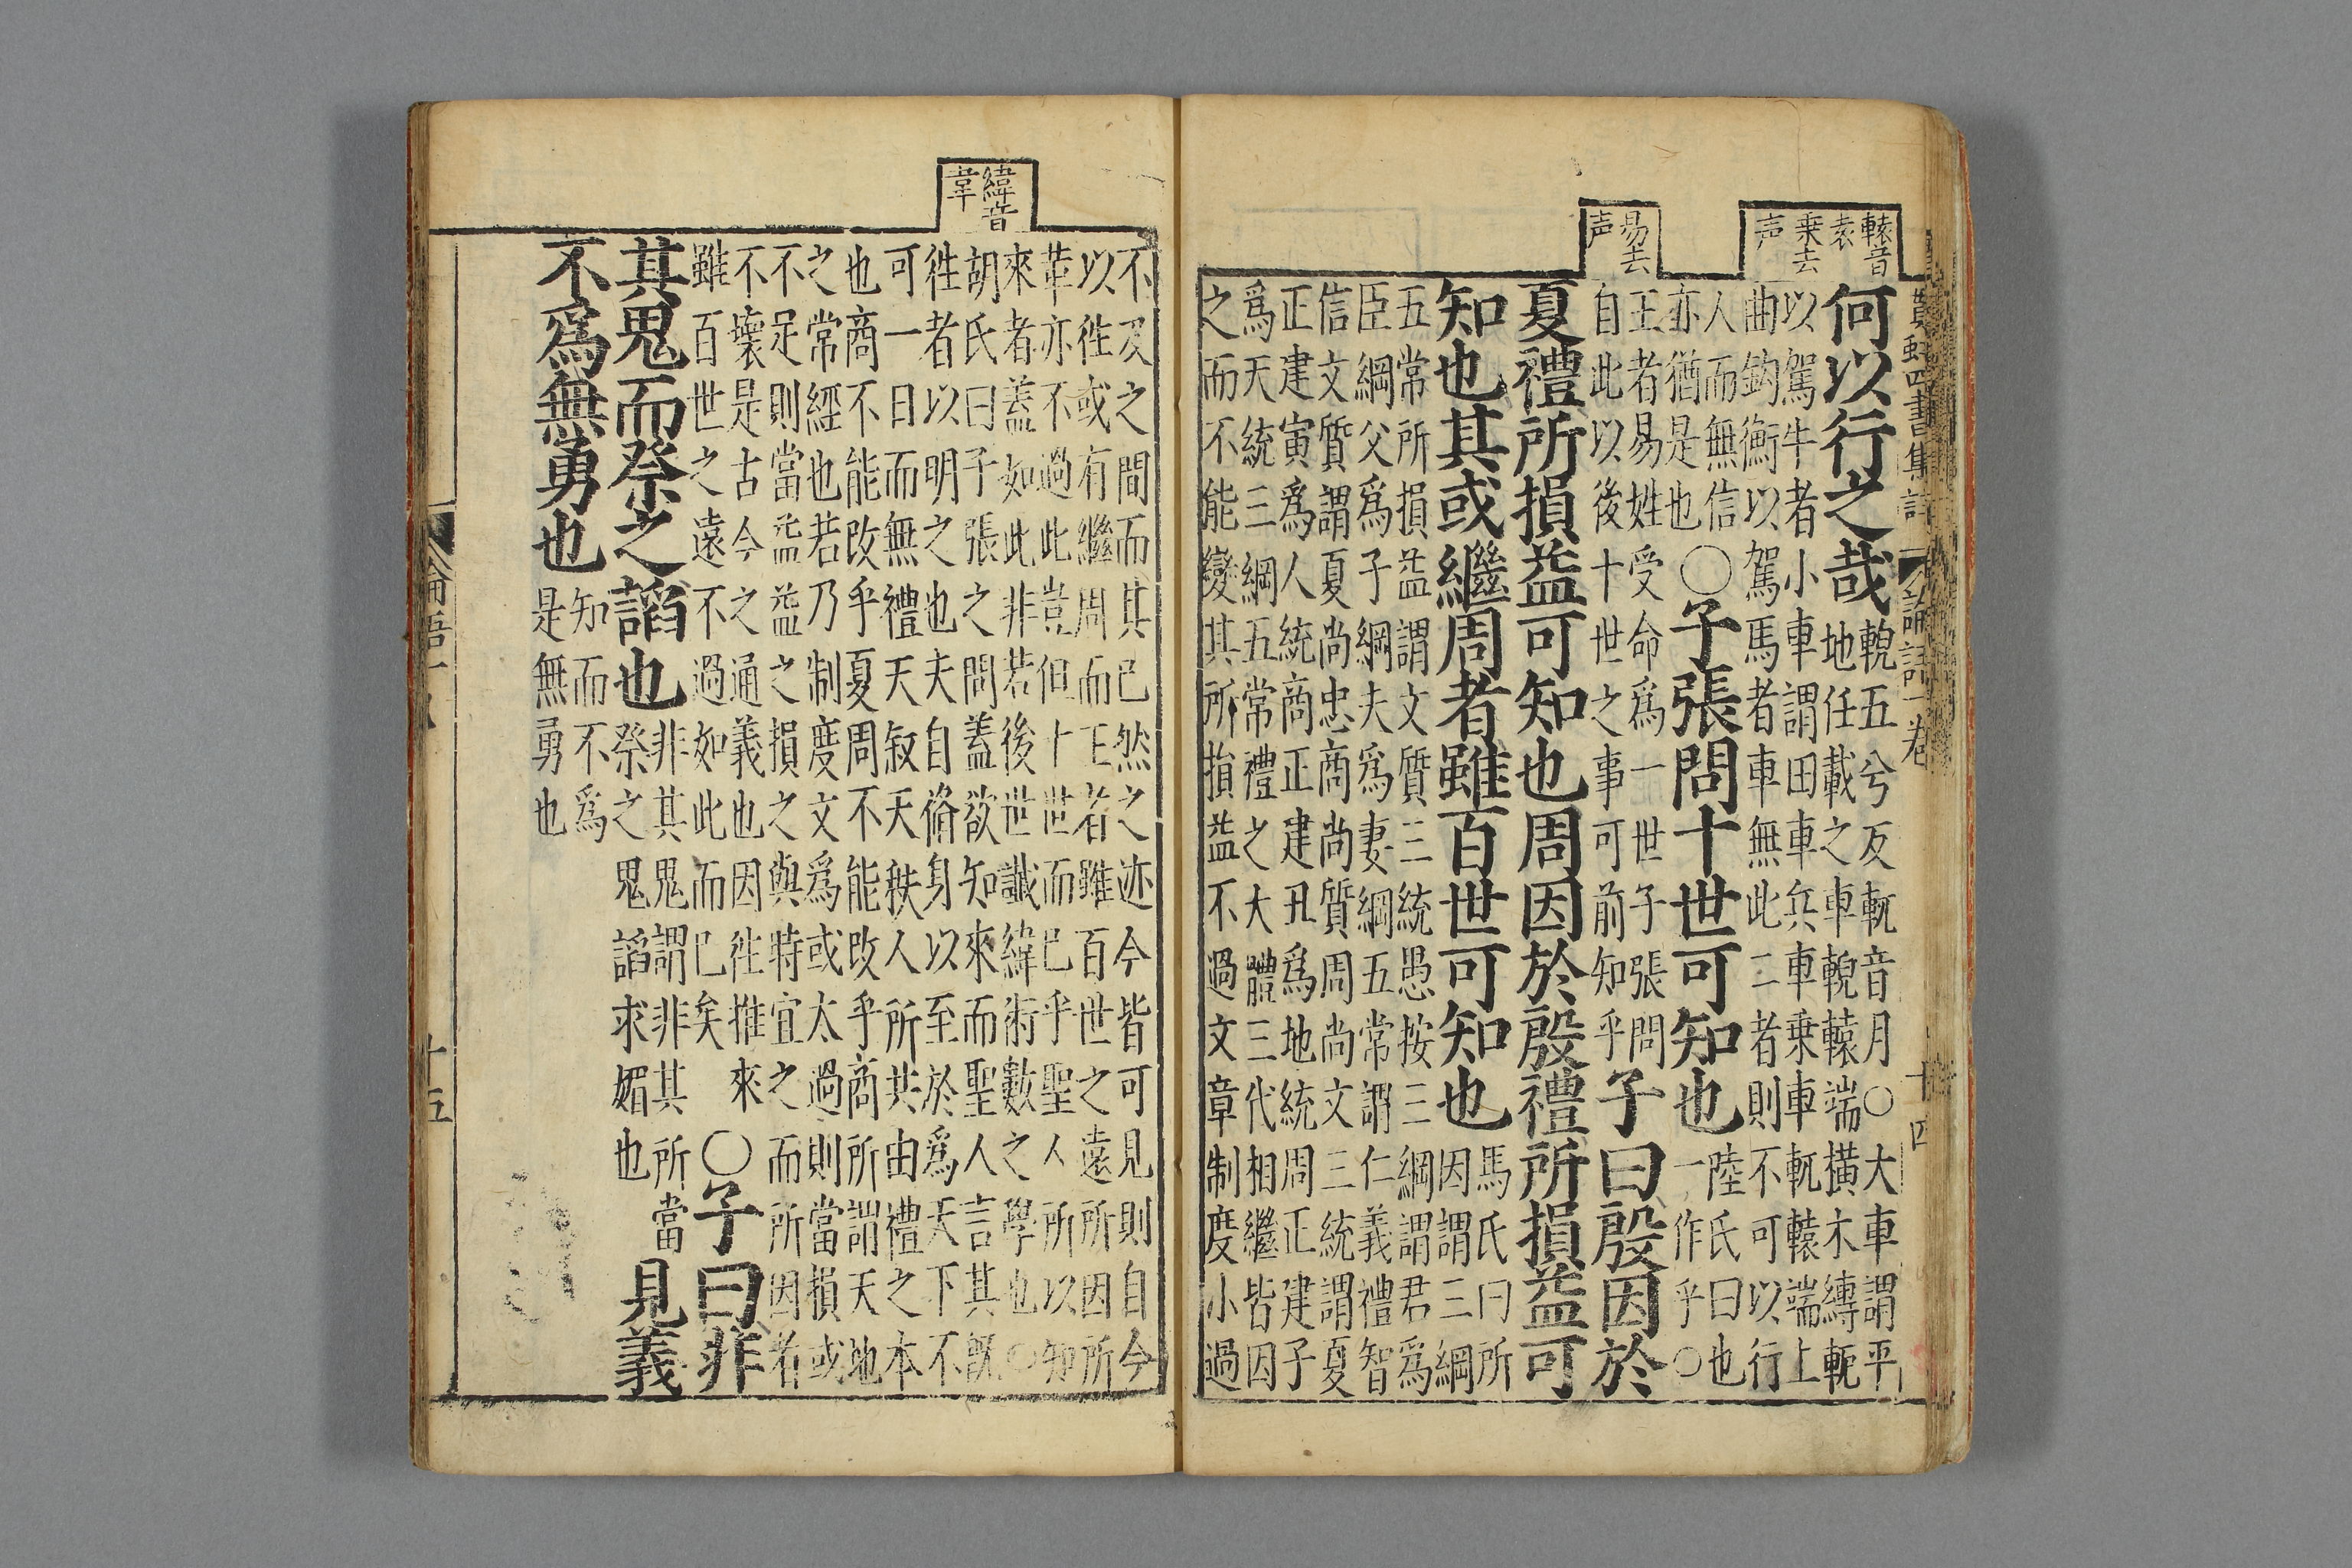 轅音
袁
乗去
声
易去
声
四書集註 論語一卷 十四
何以行之哉
輗五兮反軏音月○大車謂平
地任載之車輗轅端橫木縛軶
以駕牛者小車謂田車兵車乗車軏轅端上
曲鈎衡以駕馬者車無此二者則不可以行
人而無信
亦猶是也
○子張問十世可知也
陸氏曰也
一作乎○
王者易姓受命爲一世子張問
自此以後十世之事可前知乎
子曰殷因於
夏禮所損益可知也周因於殷禮所損益可
知也其或繼周者雖百世可知也
馬氏曰所
因謂三綱
五常所損益謂文質三統愚按三綱謂君爲
臣綱父爲子綱夫爲妻綱五常謂仁義禮智
信文質謂夏尚忠商尚質周尚文三統謂夏
正建寅爲人統商正建丑爲地統周正建子
爲天統三綱五常禮之大體三代相繼皆因
之而不能變其所損益不過文章制度小過
緯音
韋
不及之間而其已然之迹今皆可見則自今
以徃或有繼周而王者雖百世之遠所因所
革亦不過此豈但十世而已乎聖人所以知
來者蓋如此非若後世讖緯術數之學也○
胡氏曰子張之問蓋欲知來而聖人言其既
徃者以明之也夫自脩身以至於爲天下不
可一日而無禮天叙天秩人所共由禮之本
也商不能改乎夏周不能改乎商所謂天地
之常經也若乃制度文爲或太過則當損或
不足則當益益之損之與時宜之而所因者
不壞是古今之通義也因徃推來
雖百世之遠不過如此而已矣
○子曰非
其鬼而祭之諂也
非其鬼謂非其所當
祭之鬼諂求媚也
見義
不爲無勇也
知而不爲
是無勇也
論語一 十五